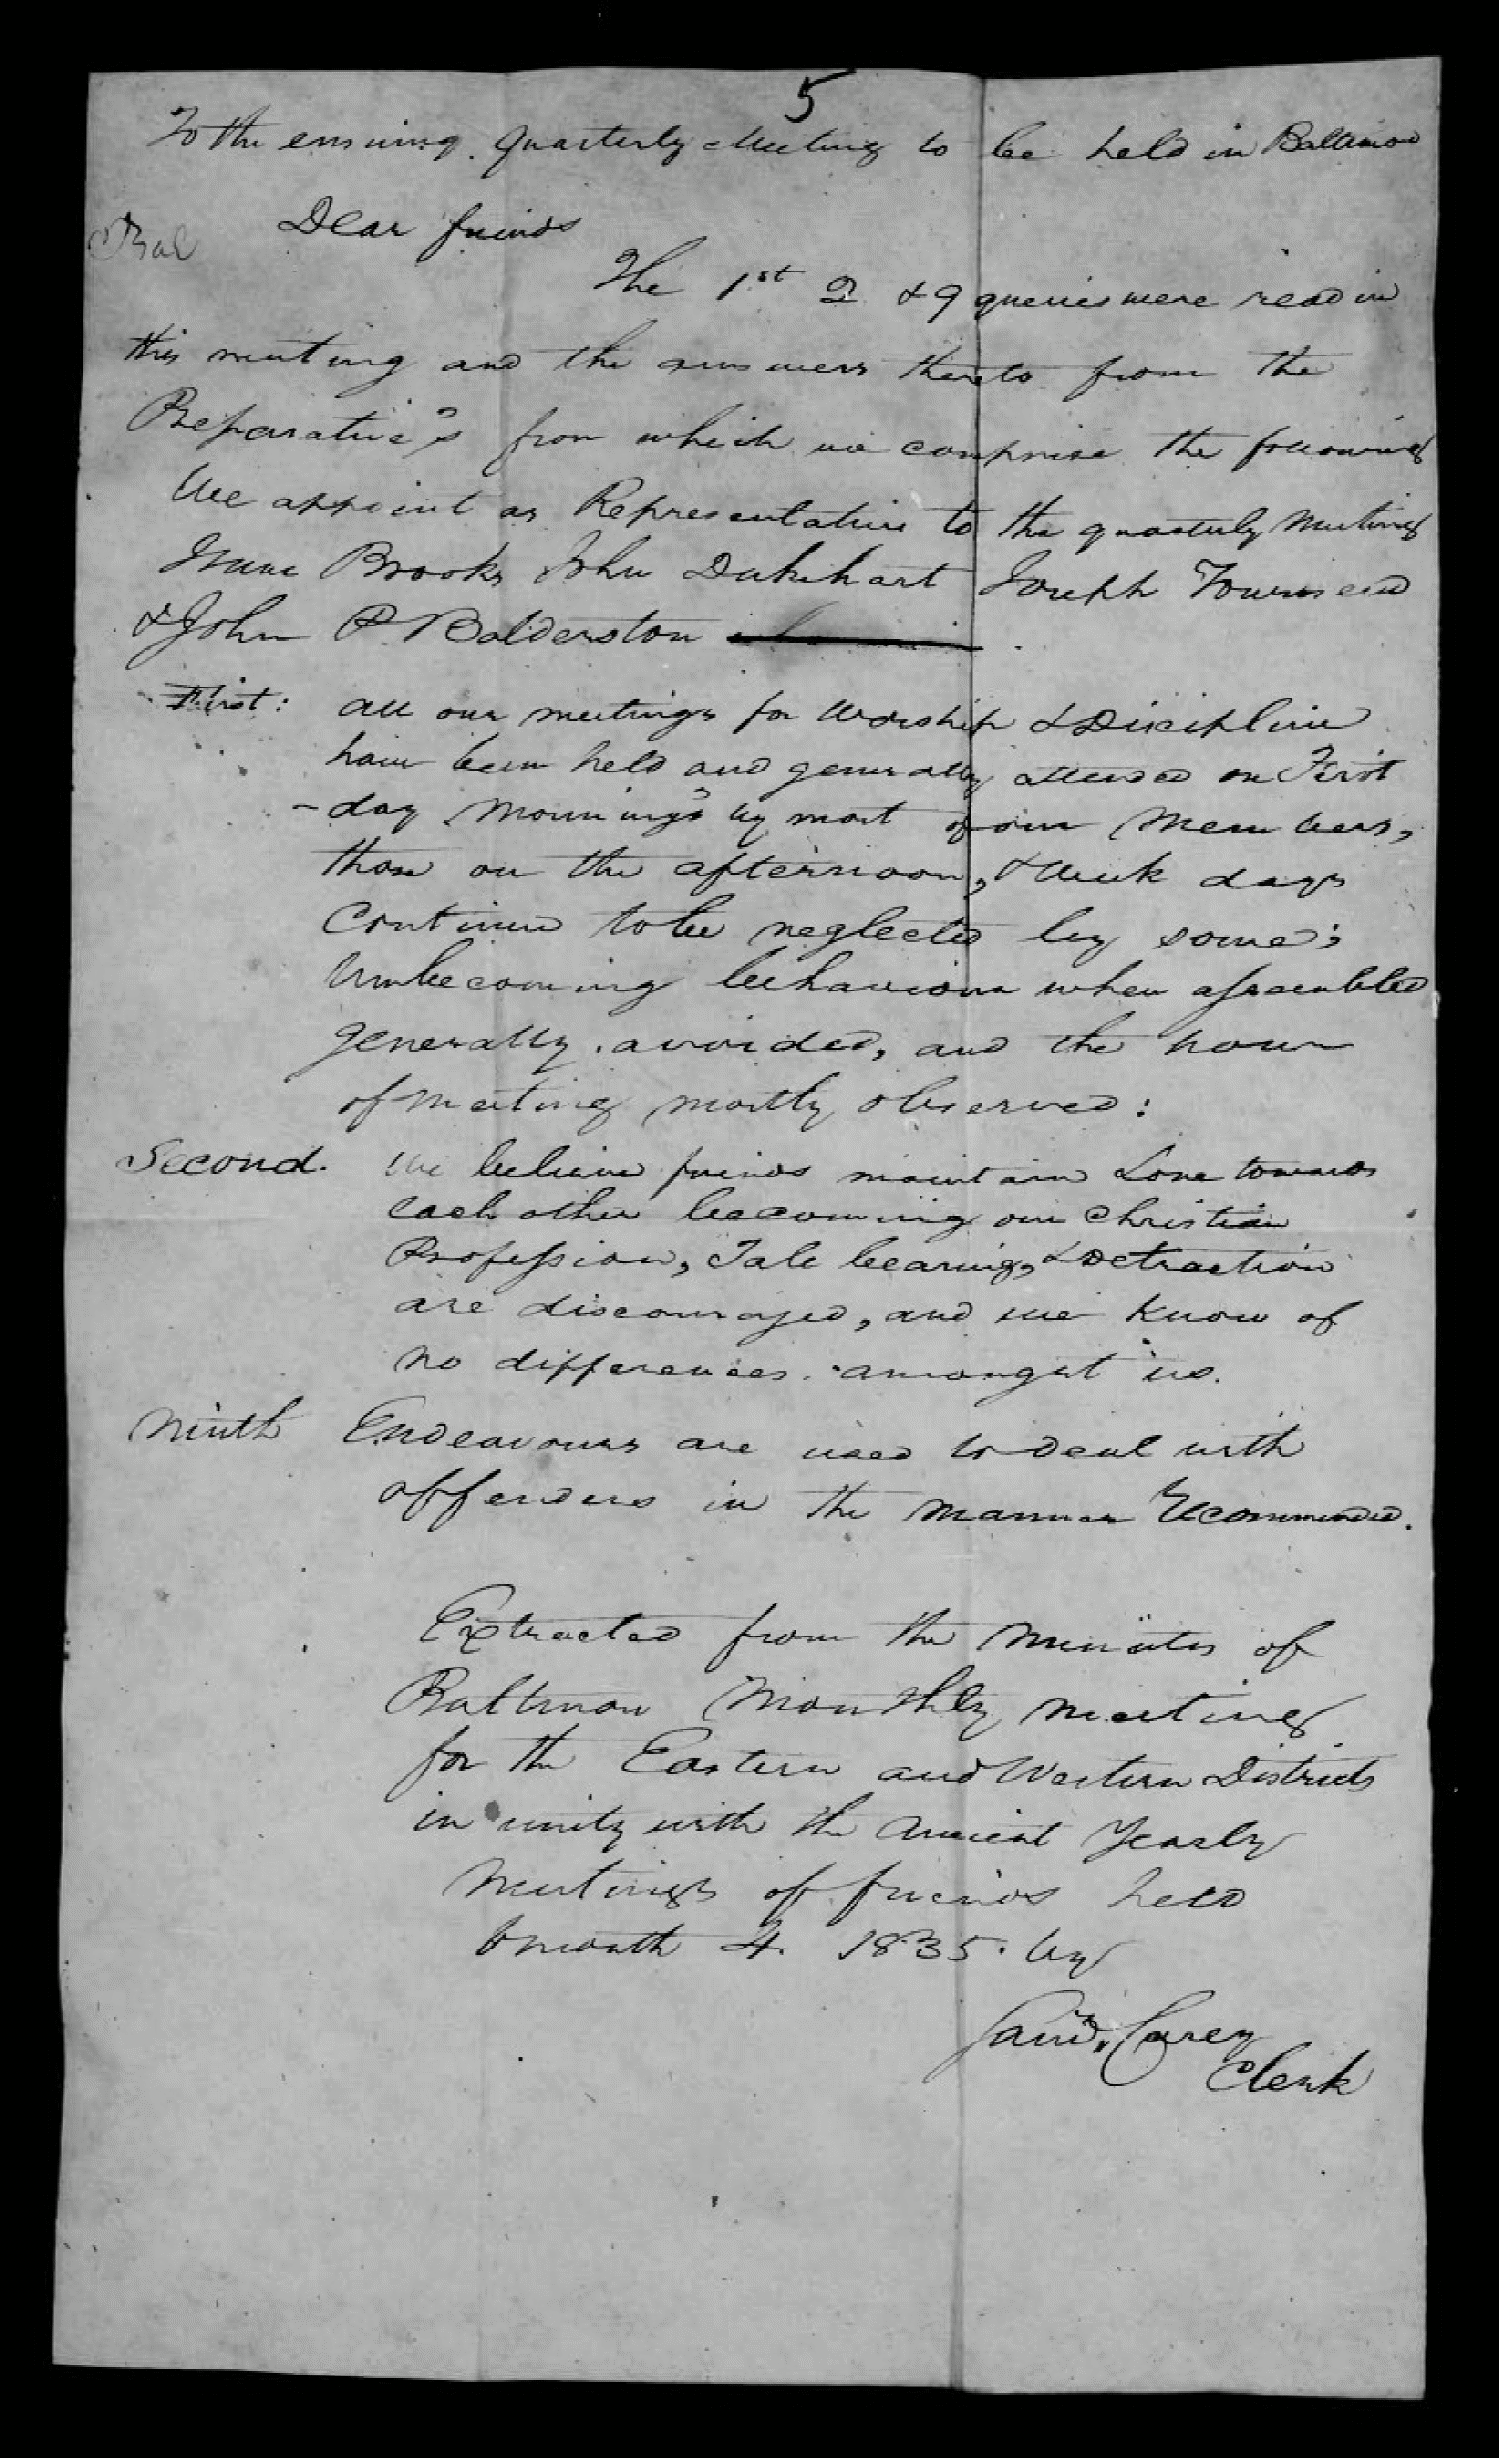 5
To the ensuing Quarterly Meeting to be held in Baltimore
Bal
Dear friends
The 1st 2 & 9 queries were read in
this meeting and the answers thereto from the
Preparative's from which we comprise the following
We appoint as Representative to the quarterly Meeting
Isaac Brooks John Dukehart Joseph Townsend
& John P Balderston
First: all our meetings for Worship & Discipline
have been held and generally attended on First
-day Morning's by most of our Members,
those on the afternoon, & Week days
Continue to be neglected by some;
Unbecoming behaviour when assembled
generally avoided, and the hour
of meeting mostly observed:
Second. We believe friends maintain Love towards
each other becoming our Christian
Profession, Tale bearing, & Detraction
are discouraged, and we know of
no differences amongst us.
Ninth Endeavours are used to deal with
offenders in the manner Recommended.
Extracted from the minutes of
Baltimore Monthly meeting
for the Eastern and Western Districts
in unity with the Ancient Yearly
Meetings of friends held
6 month 4. 1835. by
Saml. Carey
Clerk